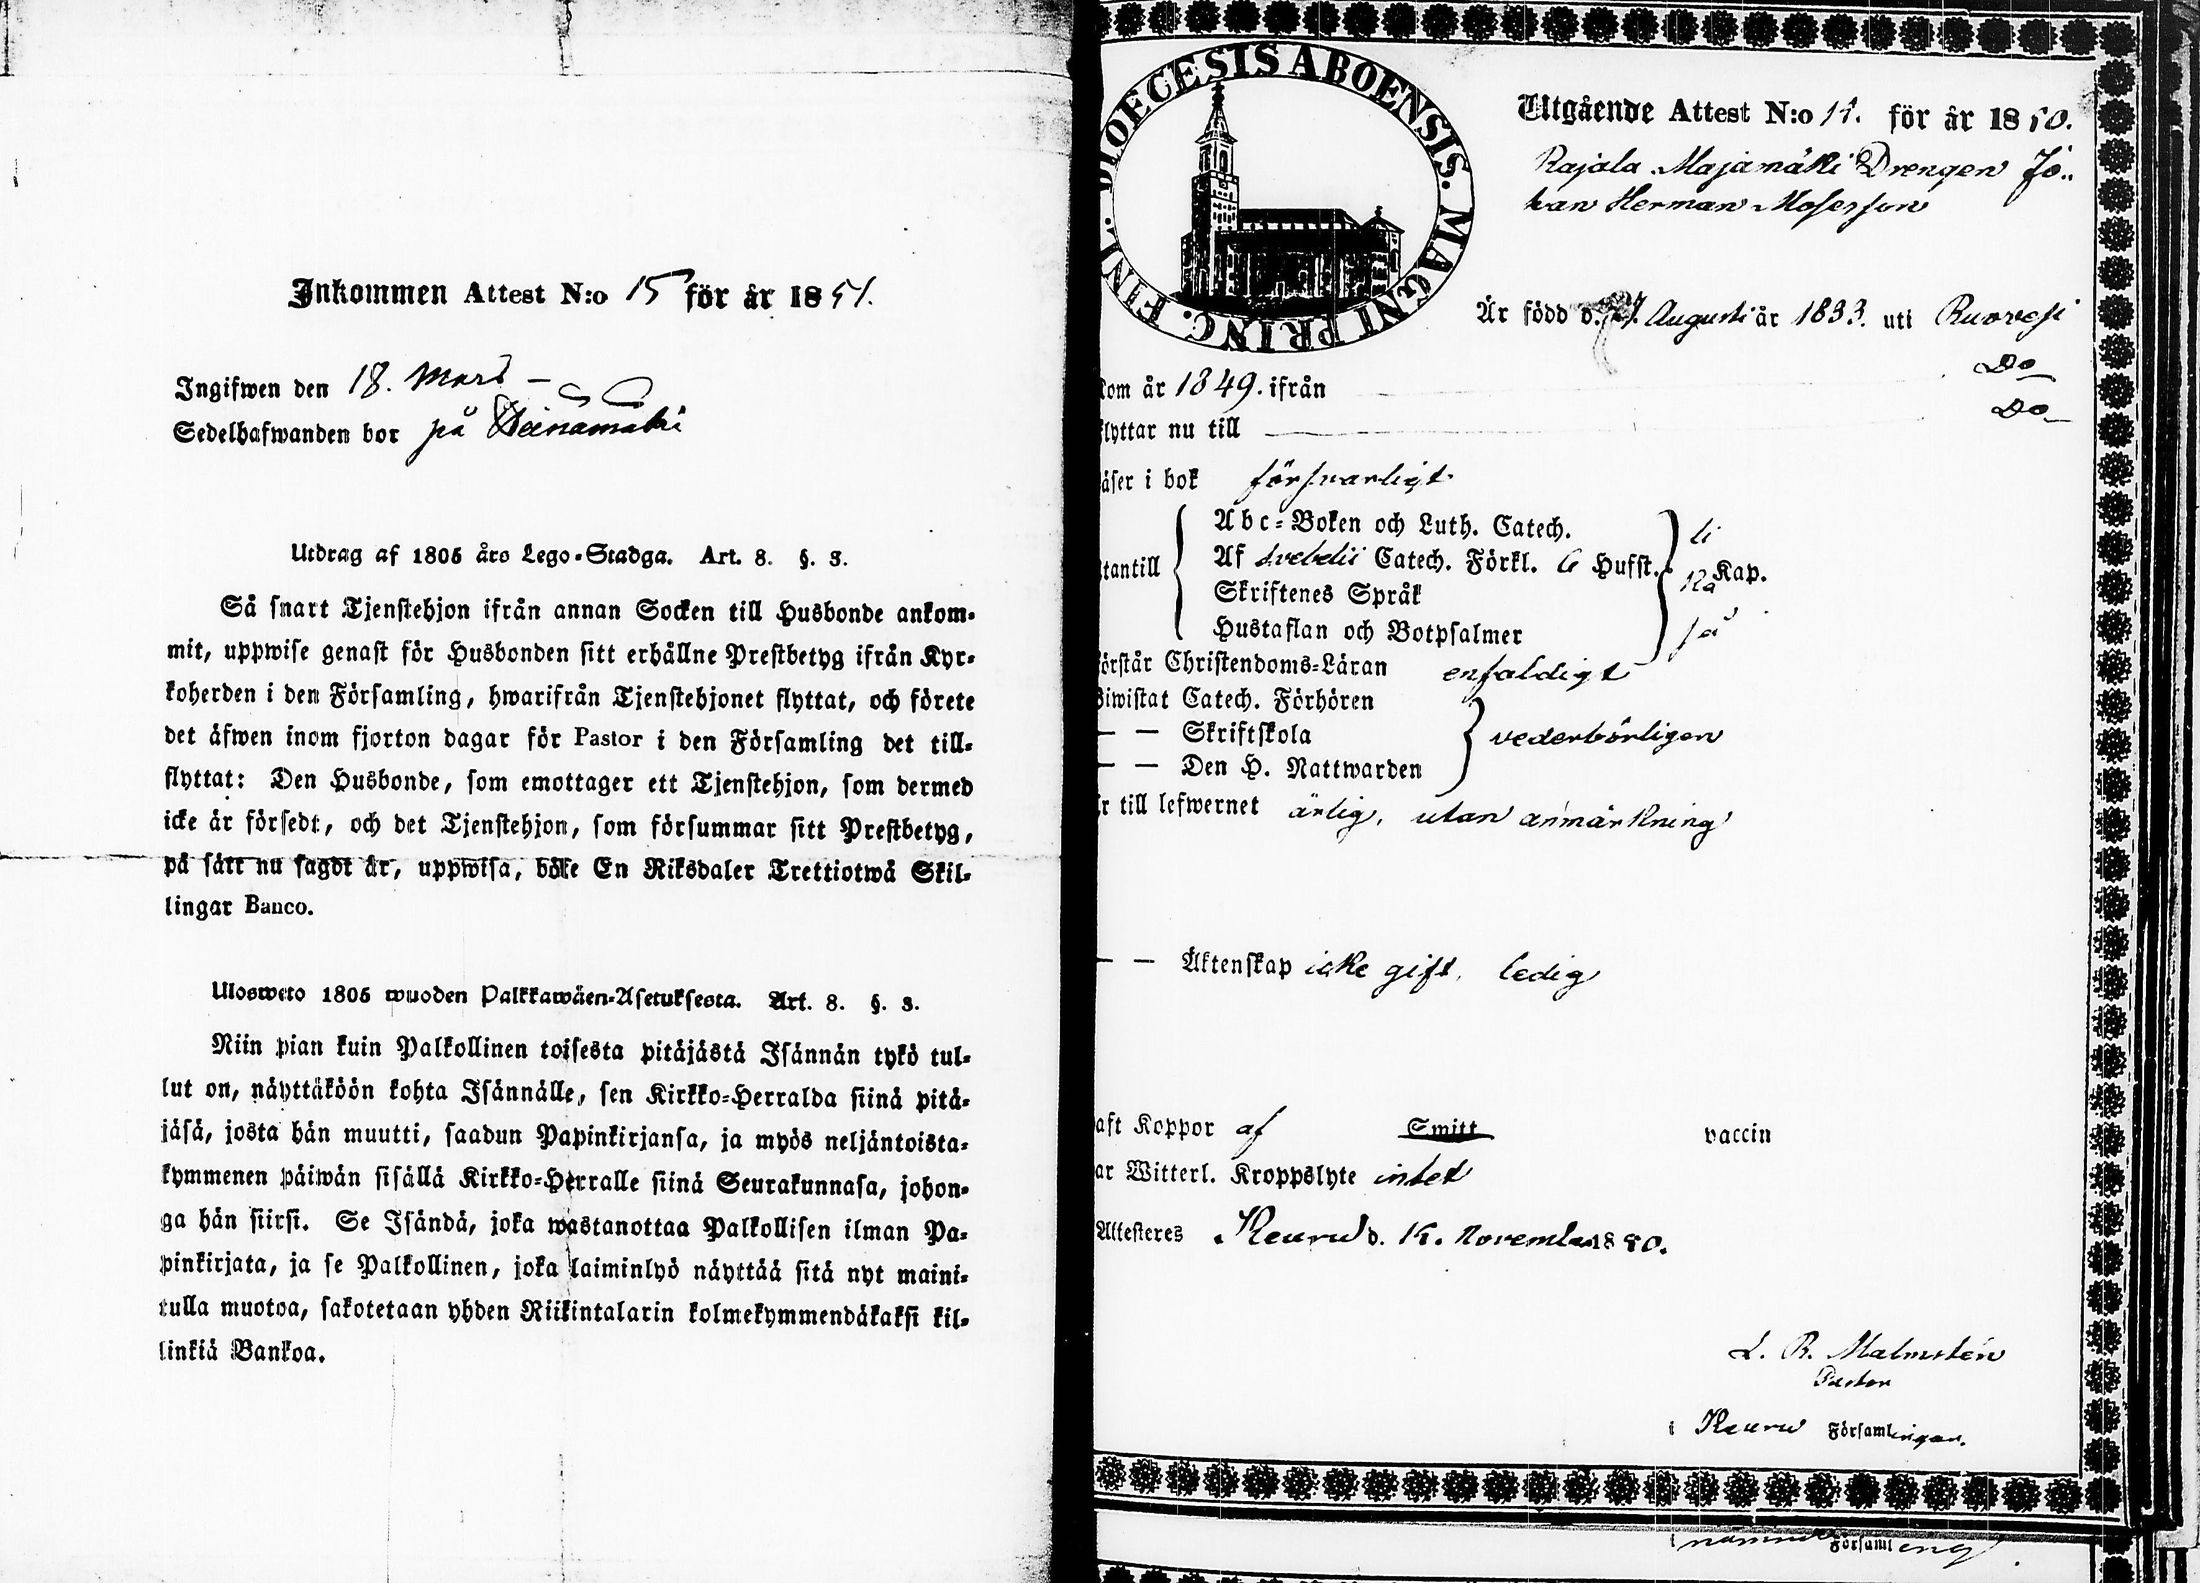 Inkommen Attest N:o 15 för år 1851.
Ingifwen den 18. Mars –
Sedelhafwanden bor på Heinämäki
Utdrag af 1805 års Lego-Stadga. Art. 8. §. 3.
Så snart Tjenstehjon ifrån annan Socken till Husbonde ankom-
mit, uppwise genast för Husbonden sitt erhållne Prestbetyg ifrån Kyr-
koherden i den Församling, hwarifrån Tjenstehjonet flyttat, och förete
det äfwen inom fjorton dagar för Pastor i den Församling det till-
flyttat: Den Husbonde, som emottager ett Tjenstehjon, som dermed
icke är försedt, och det Tjenstehjon, som försummar sitt Prestbetyg,
på sätt nu sagdt är, uppwisa, böte En Riksdaler Trettiotwå Skil-
lingar Banco.
Ulosweto 1805 wuoden Palkkawäen-Asetuksesta. Art. 8. §. 3.
Niin pian kuin Palkollinen toisesta pitäjästä Isännän tykö tul-
lut on, näyttäköön kohta Isännälle, sen Kirkko-Herralda siinä pitä-
jäsä, josta hän muutti, saadun Papinkirjansa, ja myös neljäntoista-
kymmenen päiwän sisällä Kirkko-Herralle siinä Seurakunnasa, johon-
ga hän siirsi. Se Isändä, joka wastanottaa Palkollisen ilman Pa-
pinkirjata, ja se Palkollinen, joka laiminlyö näyttää sitä nyt maini-
tulla muotoa, sakotetaan yhden Riikintalarin kolmekymmendäkaksi kil-
linkiä Bankoa.
DIOECESIS ABOENSIS. MAGNI PRINC. FINL.
Utgående Attest N:o 11. för år 1850.
Rajala Majamäki Drengen Jo-
han Herman Mosesson
Är född d. Augusti år 1833. uti Ruovesi
Kom år 1849. ifrån Do
flyttar nu till Do
läser i bok försvarligt
utantill Abc-Boken och Luth. Catech.
Af Svebelii Catech. Förkl. 6 Hufst. Kap.
Skriftenes Språk
Hustaflan och Botpsalmer
förstår Christendoms-Läran enfaldigt
Biwistat Catech. Förhören
— — Skriftskola vederbörligen
— — Den H. Nattwarden
är till lefwernet ärlig, utan anmärkning
— — Äktenskap icke gift, ledig
haft Koppor af Smitt vaccin
har Witterl. Kroppslyte intet
Attesteres Keuru d. November 1850.
L. R. Malmstén
Pastor
i Keuru Församlingar.
i Församl